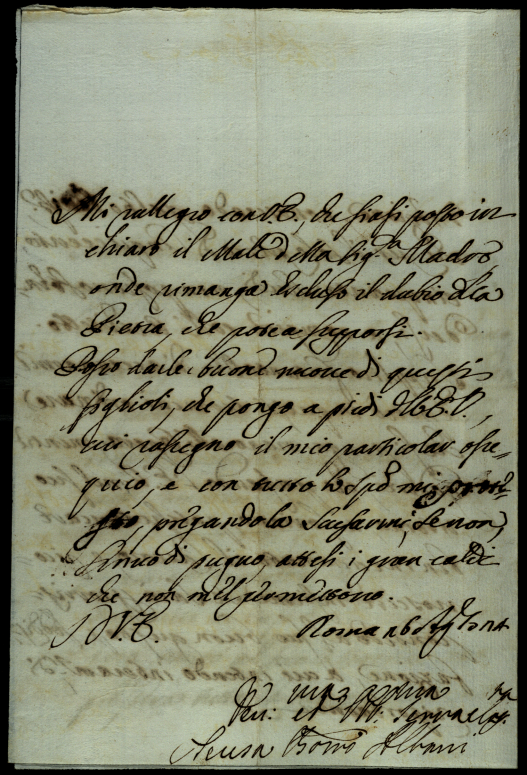 Mi rallegro con V.E., che siasi posto in
chiaro il Male della Sig.ra Madre
onde rimanga escluso il dubio della
Pietra, che potea supporsi.
Posso darle buone nuove di questi
figlioli, che pongo a piedi dell'E.V.,
cui rassegno il mio particolar osse-
quio, e con tutto lo Sp.o mi
pregandola scusarmi, se non
scrivo di pugno, attesi i gran caldi
che non mel permettono.
D V.E. Roma
Teresa Borro Albani